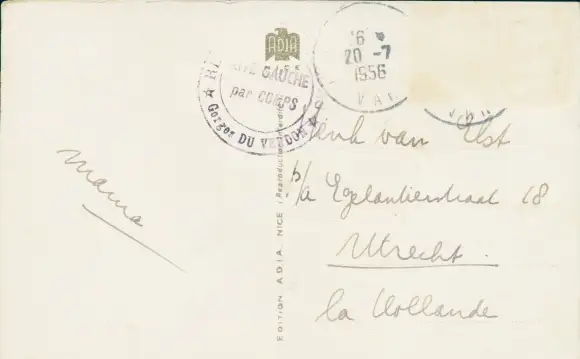 mama
ADIA
RIVE GAUCHE
par COMPS
★ Gorges DU VERDON ★
20 -7
1956
VAR
VAR
EDITION A.D.I.A. NICE (Reproduction
Henk van Elst
p/a Egelantierstraat 18
Utrecht.
la Hollande